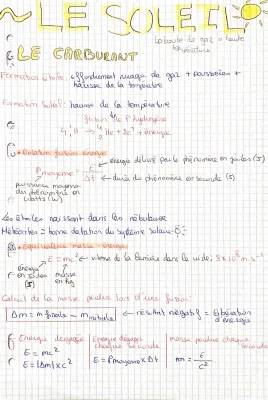 ~ LE SOLEIL
LE CARBURANT
la boule de gaz = haute température
Formation étoile: effondrement nuage de gaz + poussières +
hausse de la température
Formation Soleil: hausse de la température
fusion de l'hydrogène
énergie
• Relation fusion énergie
énergie délivré par le phénomène en joules (J)
Pmoyenne = E/Δt
durée du phénomène en seconde (s)
puissance moyenne
du phénomène en
watts (W)
Les étoiles naissent dans les nébuleuse
Météorites = bonne datation du système solaire
• Equivalence masse - énergie
E = mc² vitesse de la lumière dans le vide, 3x10⁸ m.s⁻¹
énergie
en joules
(J)
masse
en kg
Calcul de la masse perdue lors d'une fusion
Δm = m finale - m initiale ← résultat négatif = libération
d'énergie
Energie dégagée
E = mc²
E = |Δm| x c²
Energie dégagée
chaque seconde
E = Pmoyenne x Δt
masse perdue chaque
seconde
m = E/c²